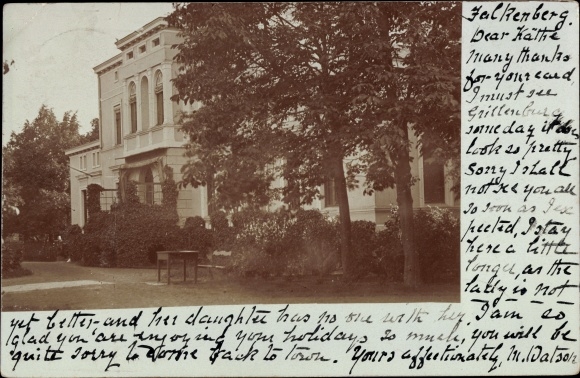 Falkenberg.
Dear Käthe
Many thanks
for your card
I must see
Grillenburg
some day it does
look so pretty
Sorry I shall
not see you all
so soon as I ex
pected, I stay
here a little
longer, as the
lady is not
yet better and her daughter has no one with her. I am so
glad you are enjoying your holidays so much, you will be
quite sorry to come back to town. Yours affectionately, M. Watson